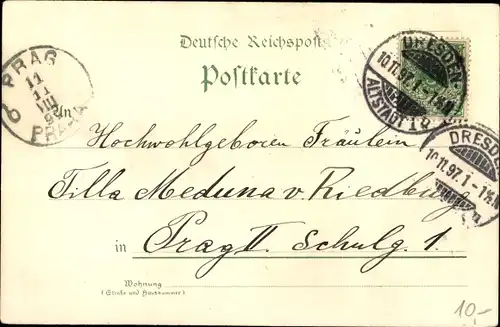 Deutsche Reichspost
Postkarte
An
Hochwohlgeboren Fräulein
Tilla Meduna v. Riedburg
in Prag II. Schulg. 1.
Wohnung
(Straße und Hausnummer)
PRAG
11
11
PRAHA
DRESDEN-
10.11.97.1-
ALTSTADT 1
DRESDE
10.11.97.1-
10,-